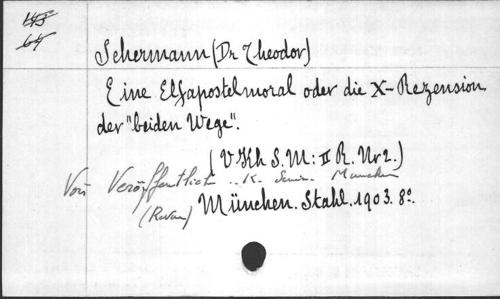 43
64
Schermann (Dr Theodor)
Eine Elfapostelmoral oder die X-Rezension
der "beiden Wege".
(VKh S.M: II R. Nr 2.)
Veröffentlich .. K. Semin. München
München. Stahl. 1903. 8º.